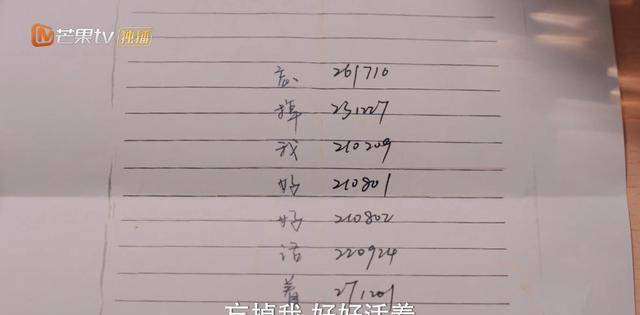 芒果tv 独播
忘 261710
掉 231227
我 210209
好 210801
好 210802
活 220924
着 271201
忘掉我 好好活着